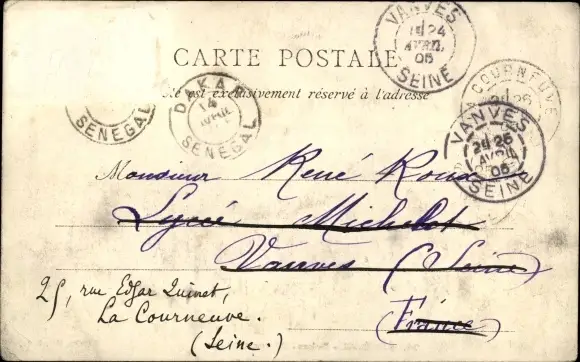 CARTE POSTALE
est exclusivement réservé à l'adresse
VANVES
24
AVRIL
05
SEINE
LA COURNEUVE
26
VANVES
26
AVRIL
05
SEINE
SENEGAL
DAKAR
14
AVRIL
SENEGAL
Monsieur René Roux
Lycée Michelet
Vanves (Seine)
(France)
25, rue Edgar Quinet,
La Courneuve.
(Seine.)